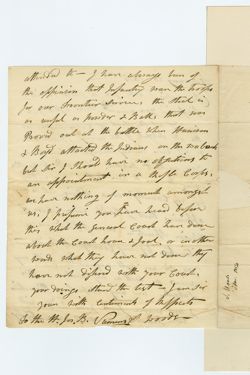 attended to - I have always been of
the oppinion that Infantry was the troops
for our frontier Service, the steel is
as usefull as powder & Ball, that was
Proved out at the battle when Harrison
& Boyd attacted the Indians on the Wabash
but Sir I Should have no objections to
an appointment in a Rifle Corps,
we have nothing of moment amongst
us, I presume you have head before
this what the General Court have done
about the Court house & Goal, or in other
words what they have not done they
have not dispensd with your Court,
your doings attend the rest - I am Sir
yours with centiments of Respects
to the H. Jos. B. Samuel Woods
S. Woods